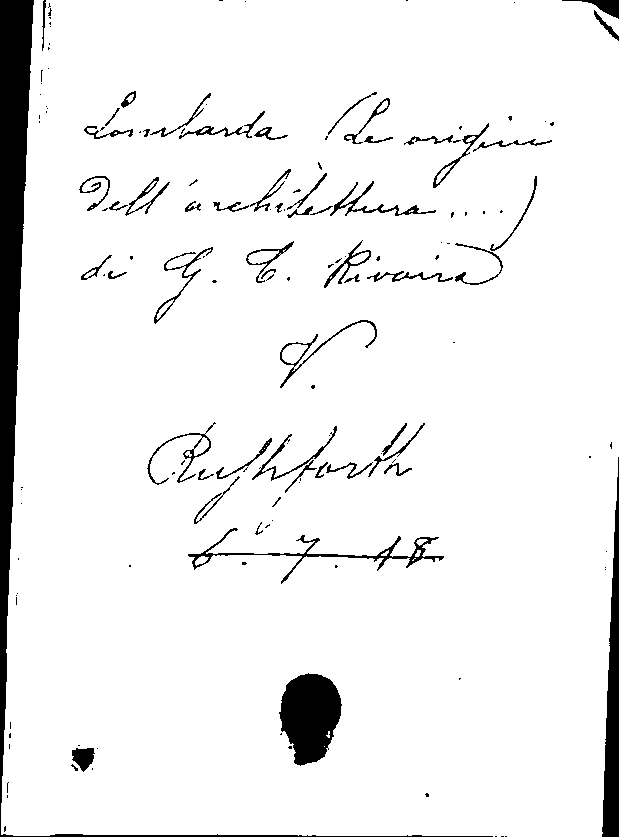 Lombarda (Le origini
dell'architettura....)
di G. T. Rivoira
V.
Rushforth
6. 7. 18.